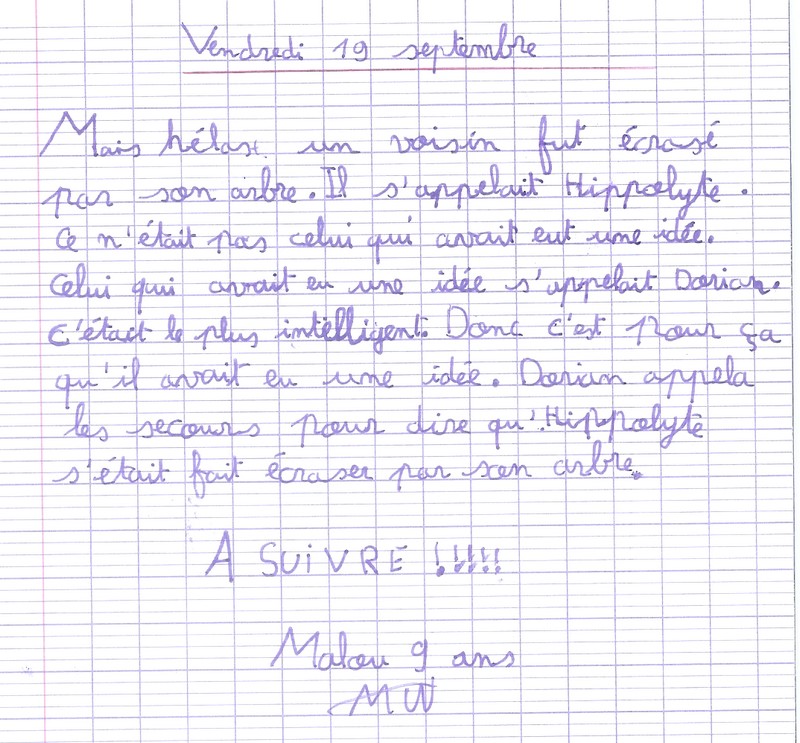 Vendredi 19 septembre
Mais hélas. un voisin fut écrasé
par son arbre. Il s'appelait Hippolyte.
Ce n'était pas celui qui avait eut une idée.
Celui qui avait eu une idée s'appelait Dorian.
C'était le plus intelligent. Donc c'est pour ça
qu'il avait eu une idée. Dorian appela
les secours pour dire qu'Hippolyte
s'était fait écraser par son arbre.
A SUiVRE !!!!!!
Malou 9 ans
MW